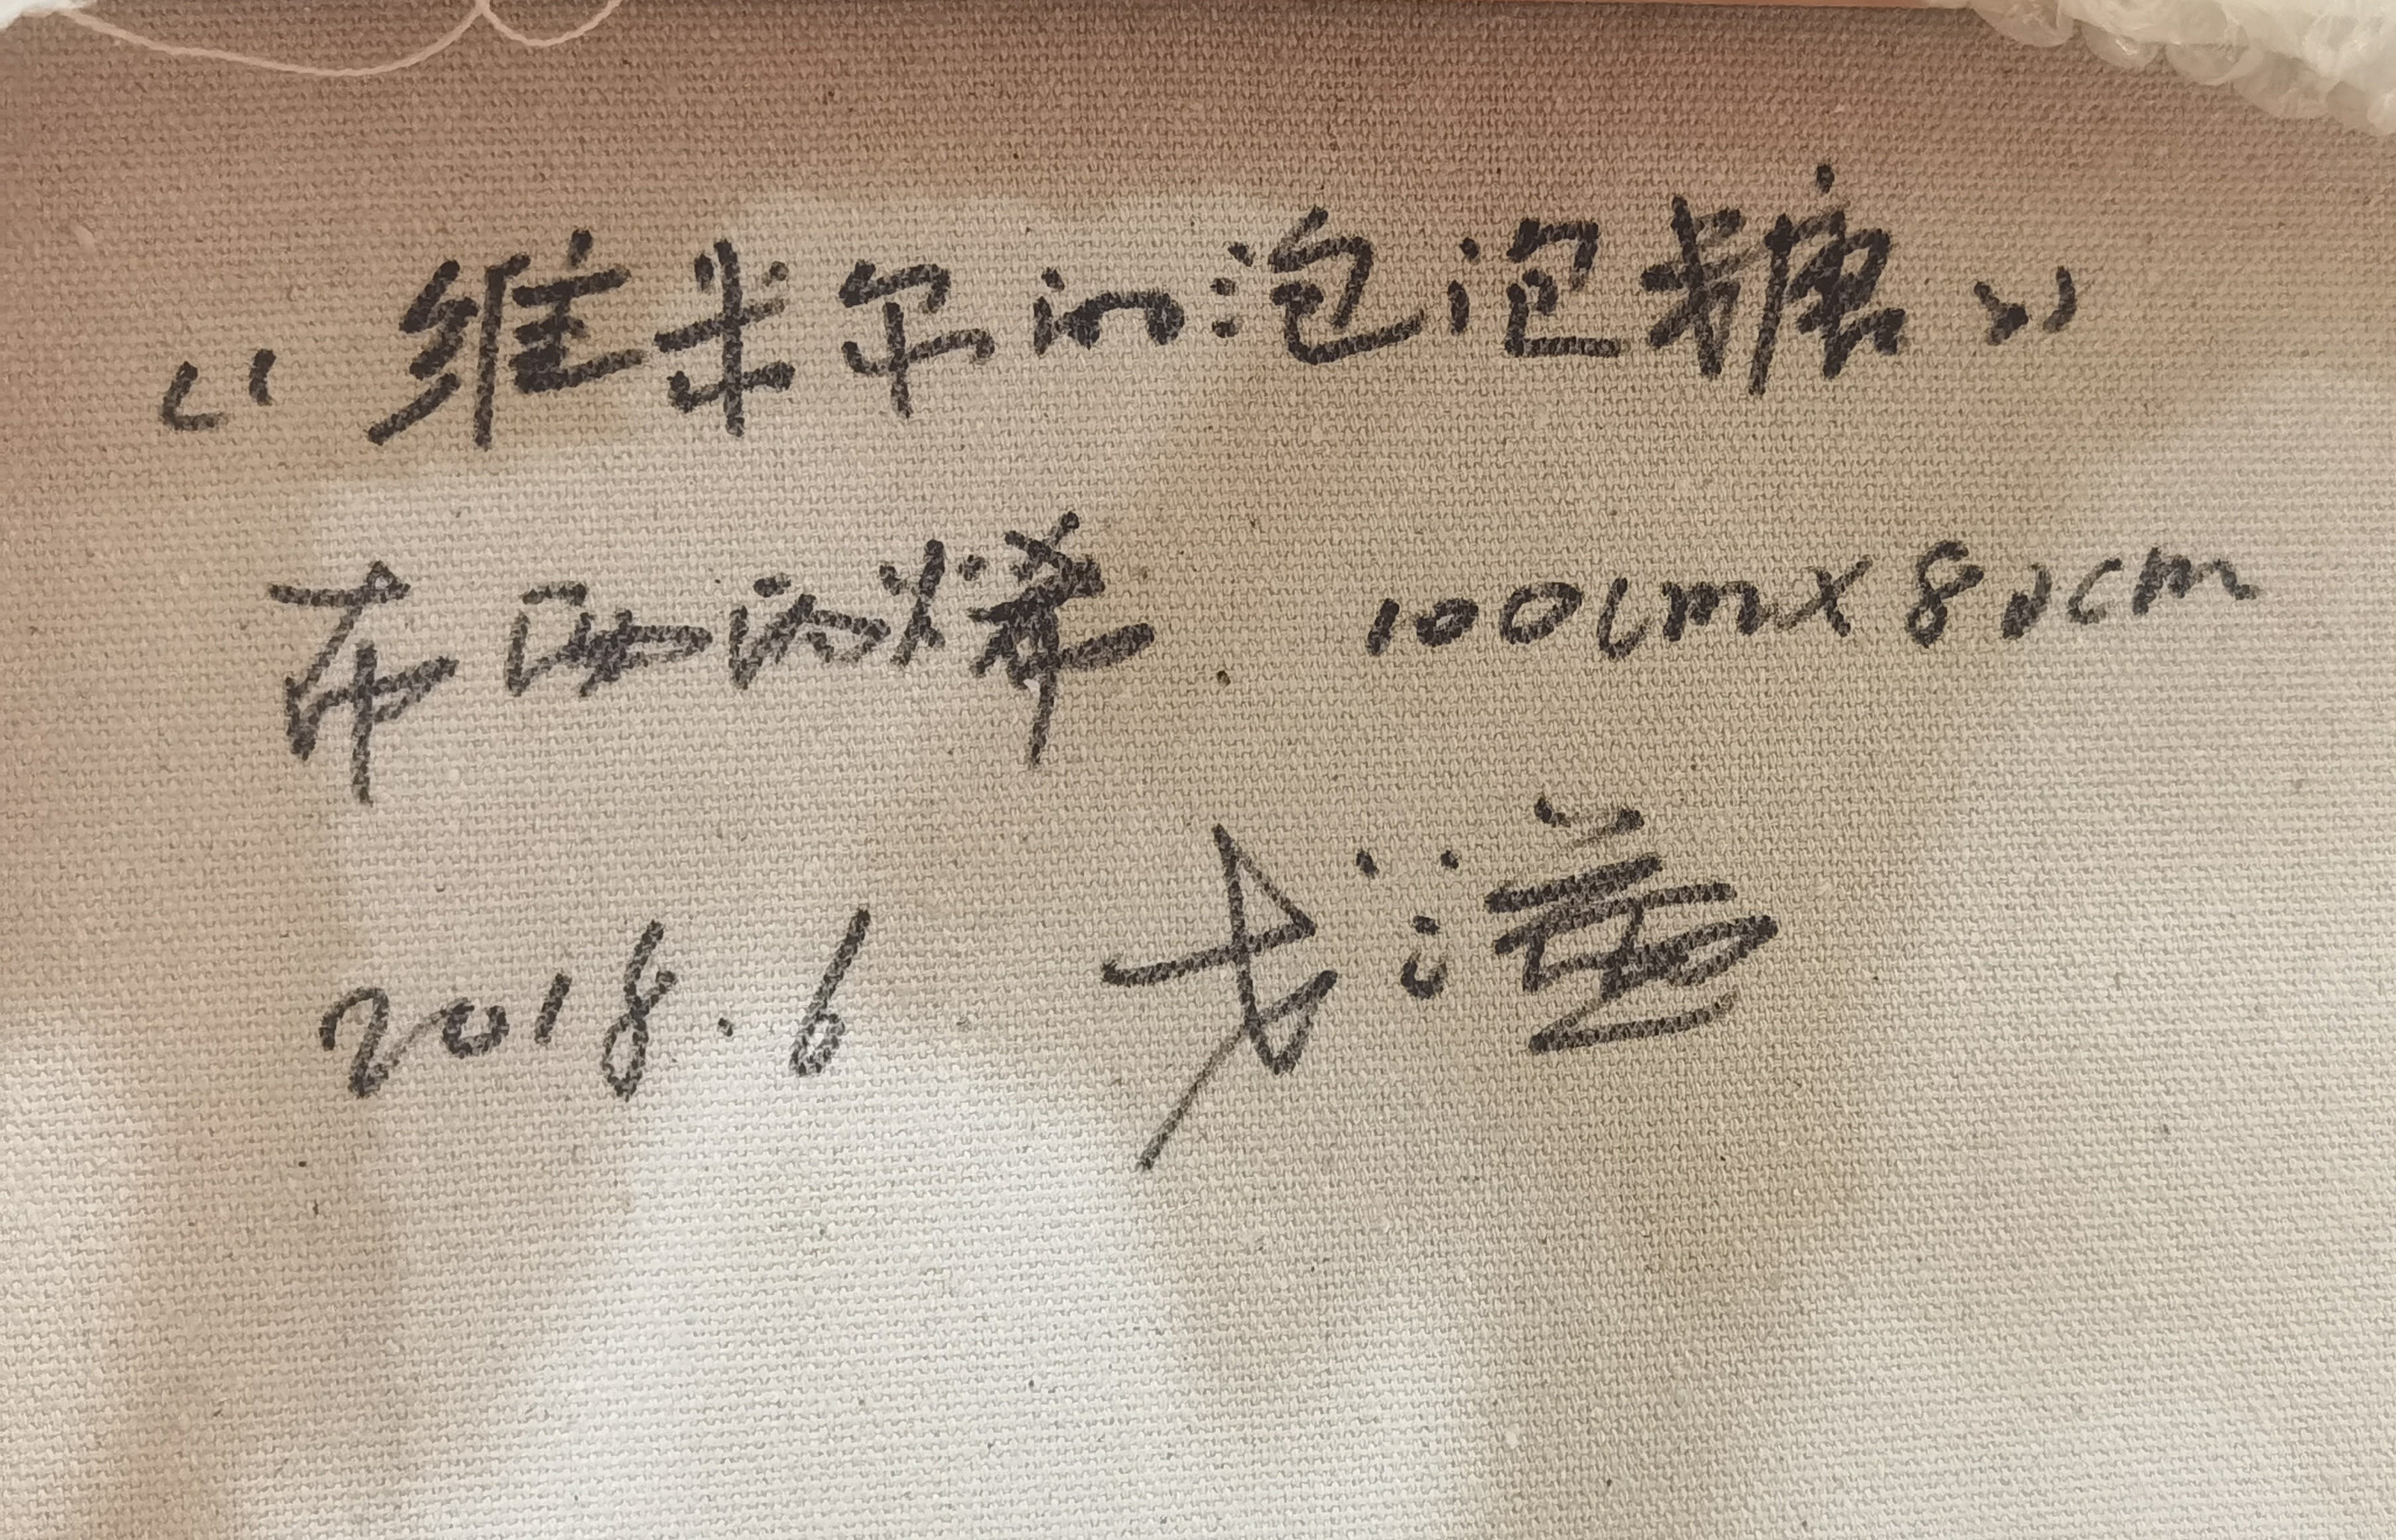 “维米尔的泡泡糖”
布面丙烯. 100cm×80cm
2018.6